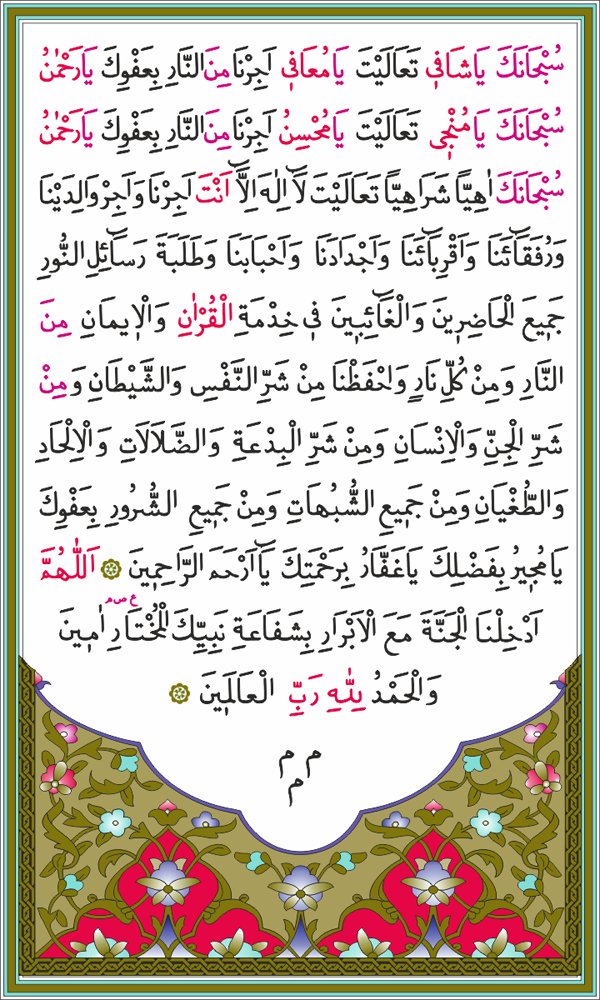 سُبْحَانَكَ يَاشَافِي تَعَالَيْتَ يَامُعَافِي اَجِرْنَا مِنَ النَّارِ بِعَفْوِكَ يَارَحْمٰنُ
سُبْحَانَكَ يَامُنْجِي تَعَالَيْتَ يَامُحْسِنُ اَجِرْنَا مِنَ النَّارِ بِعَفْوِكَ يَارَحْمٰنُ
سُبْحَانَكَ اٰهِيًّا شَرَاهِيًّا تَعَالَيْتَ لَٓا اِلٰهَ اِلَّٓا اَنْتَ اَجِرْنَا وَاَجِرْ وَالِدَيْنَا
وَرُفَقَٓائَنَا وَاَقْرِبَٓائَنَا وَاَجْدَادَنَا وَاَحْبَابَنَا وَطَلَبَةَ رَسَٓائِلِ النُّورِ
جَمِيعَ الْحَاضِرِينَ وَالْغَٓائِبِينَ فِي خِدْمَةِ الْقُرْاٰنِ وَالْاِيمَانِ مِنَ
النَّارِ وَمِنْ كُلِّ نَارٍ وَاحْفَظْنَا مِنْ شَرِّ النَّفْسِ وَالشَّيْطَانِ وَمِنْ
شَرِّ الْجِنِّ وَالْاِنْسَانِ وَمِنْ شَرِّ الْبِدْعَةِ وَالضَّلَالَاتِ وَالْاِلْحَادِ
وَالطُّغْيَانِ وَمِنْ جَمِيعِ الشُّبُهَاتِ وَمِنْ جَمِيعِ الشُّرُورِ بِعَفْوِكَ
يَامُجِيرُ بِفَضْلِكَ يَاغَفَّارُ بِرَحْمَتِكَ يَٓا اَرْحَمَ الرَّاحِمِينَ ۞ اَللّٰهُمَّ
اَدْخِلْنَا الْجَنَّةَ مَعَ الْاَبْرَارِ بِشَفَاعَةِ نَبِيِّكَ الْمُخْتَارِ ع ص م اٰمِينَ
وَالْحَمْدُ لِلّٰهِ رَبِّ الْعَالَمِينَ ۞
م م
م